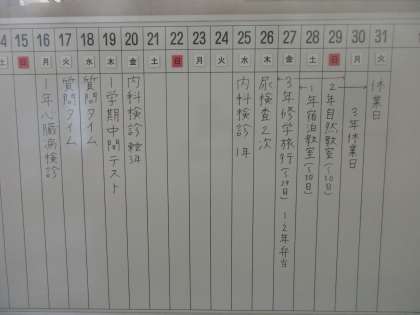 4 15 16 17 18 19 20 21 22 23 24 25 26 27 28 29 30 31
土 日 月 火 水 木 金 土 日 月 火 水 木 金 土 日 月 火
1年心臓病検診
質問タイム
質問タイム
1学期中間テスト
内科検診 3年
内科検診 1年
尿検査2次
3年修学旅行(〜29日) 1 2年弁当
1年宿泊教室
2年自然教室(〜30日)
3年休業日
休業日